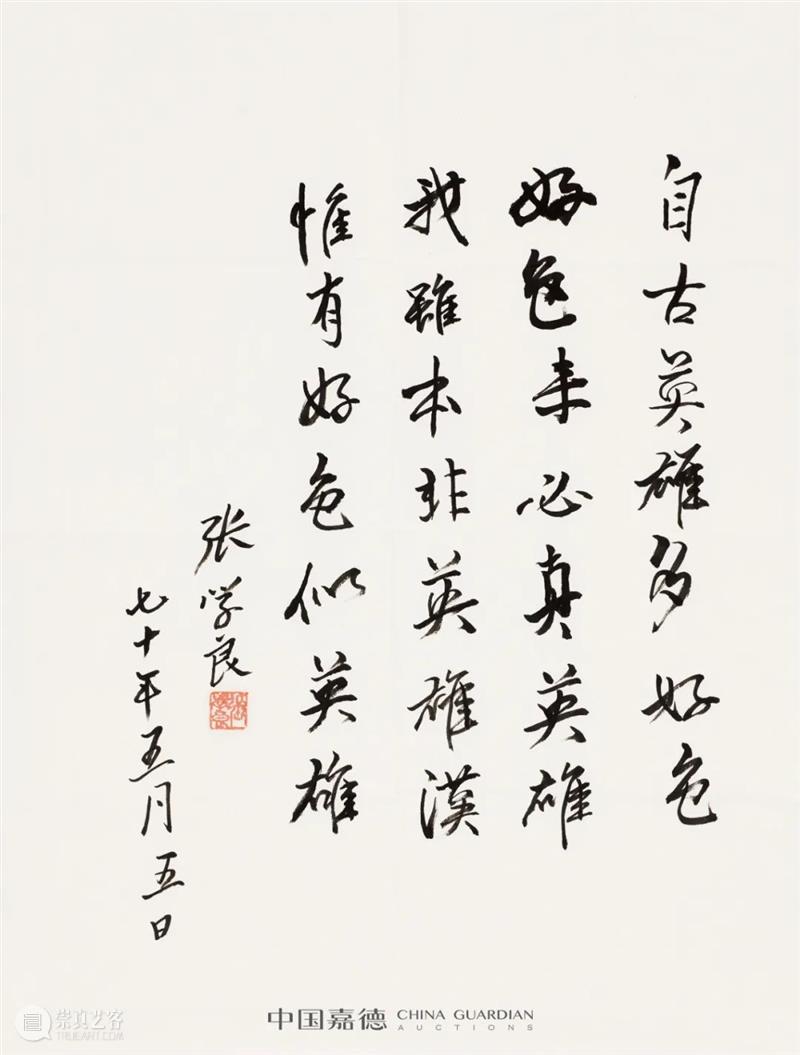 自古英雄多好色
好色未必真英雄
我雖本非英雄漢
惟有好色似英雄
张学良
七十年五月五日
中国嘉德 CHINA GUARDIAN
AUCTIONS
崇真艺客